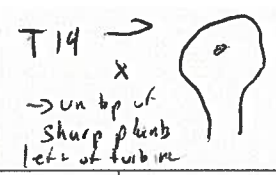 T 14 →
x
→ on top of
sharp plants
left of turbine